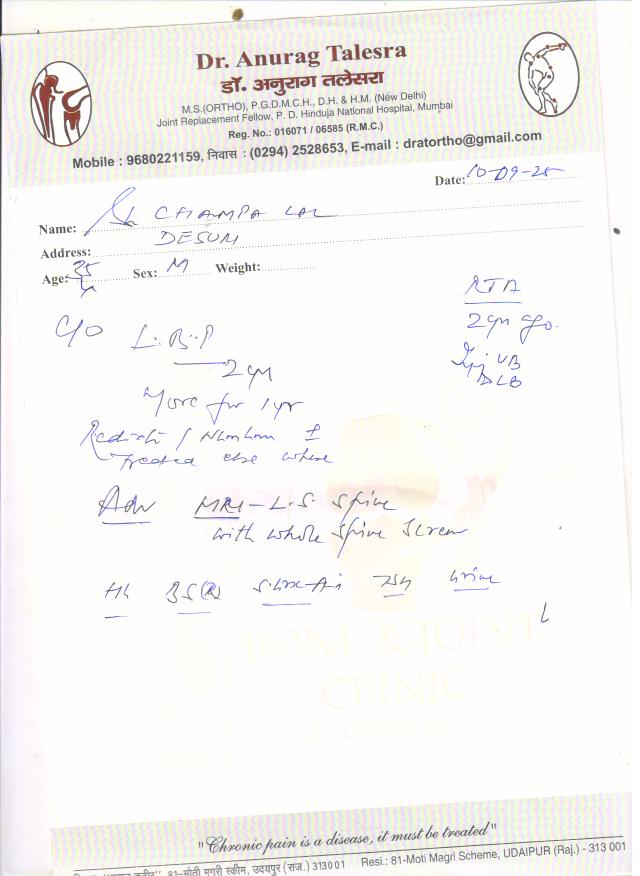 Dr. Anurag Talesra
डॉ. अनुराग तलेसरा
M.S.(ORTHO), P.G.D.M.C.H., D.H. & H.M. (New Delhi)
Joint Replacement Fellow, P. D. Hinduja National Hospital, Mumbai
Reg. No.: 016071 / 06585 (R.M.C.)
Mobile : 9680221159, निवास : (0294) 2528653, E-mail : dratortho@gmail.com
Date: 10-09-25
Name: CHAMPA LAL
Address:
Age: 35 Sex: M Weight:
RTA
2 yr ago.
C/O L.B.P
2 yr
More for 1 yr
treated else where
Adv MRI - L.S. Spine
with whole spine screen
TSH urine
BONE & JOINT
CLINIC
"Chronic pain is a disease, it must be treated"
81-मोती मगरी स्कीम, उदयपुर (राज.) 313001 Resi.: 81-Moti Magri Scheme, UDAIPUR (Raj.) - 313 001